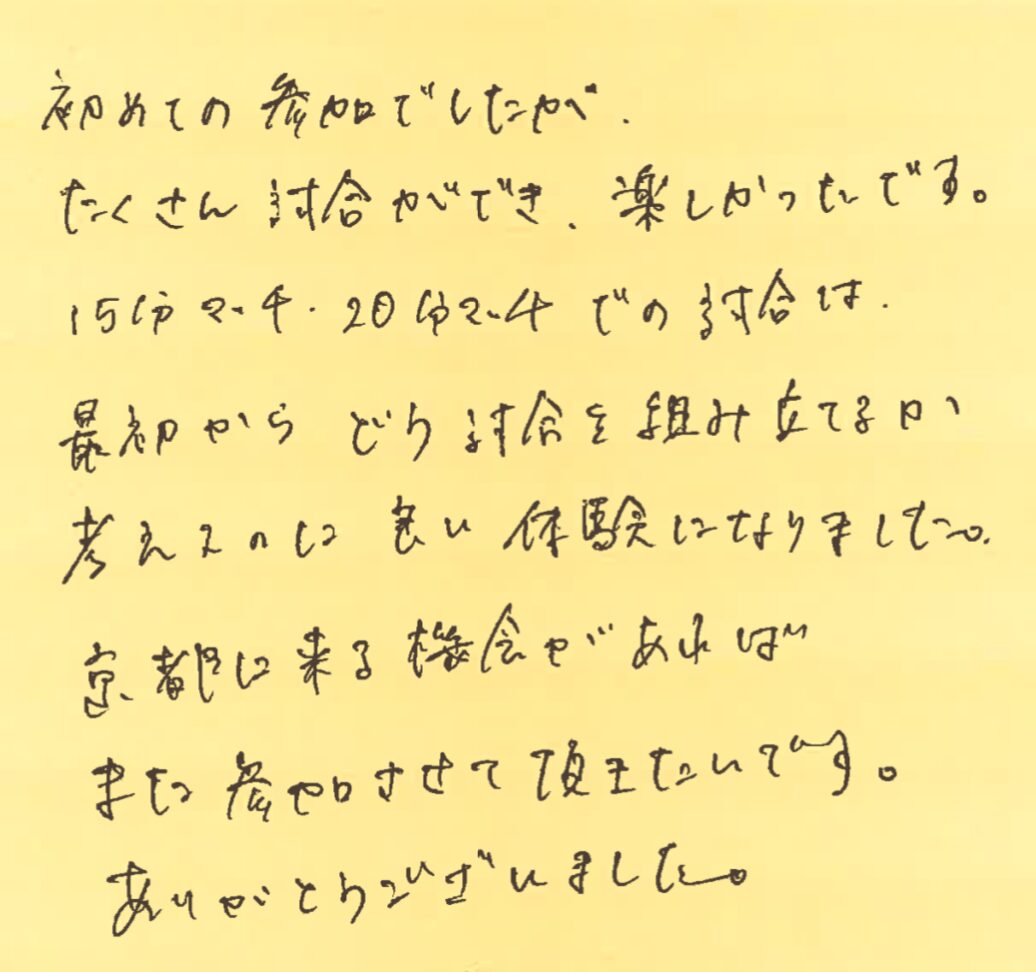 初めての参加でしたが、
たくさん試合ができ、楽しかったです。
15分マッチ・20分マッチでの試合は、
最初からどう試合を組み立てるか
考えるのに良い体験になりました。
京都に来る機会があれば
また参加させて頂きたいです。
ありがとうございました。